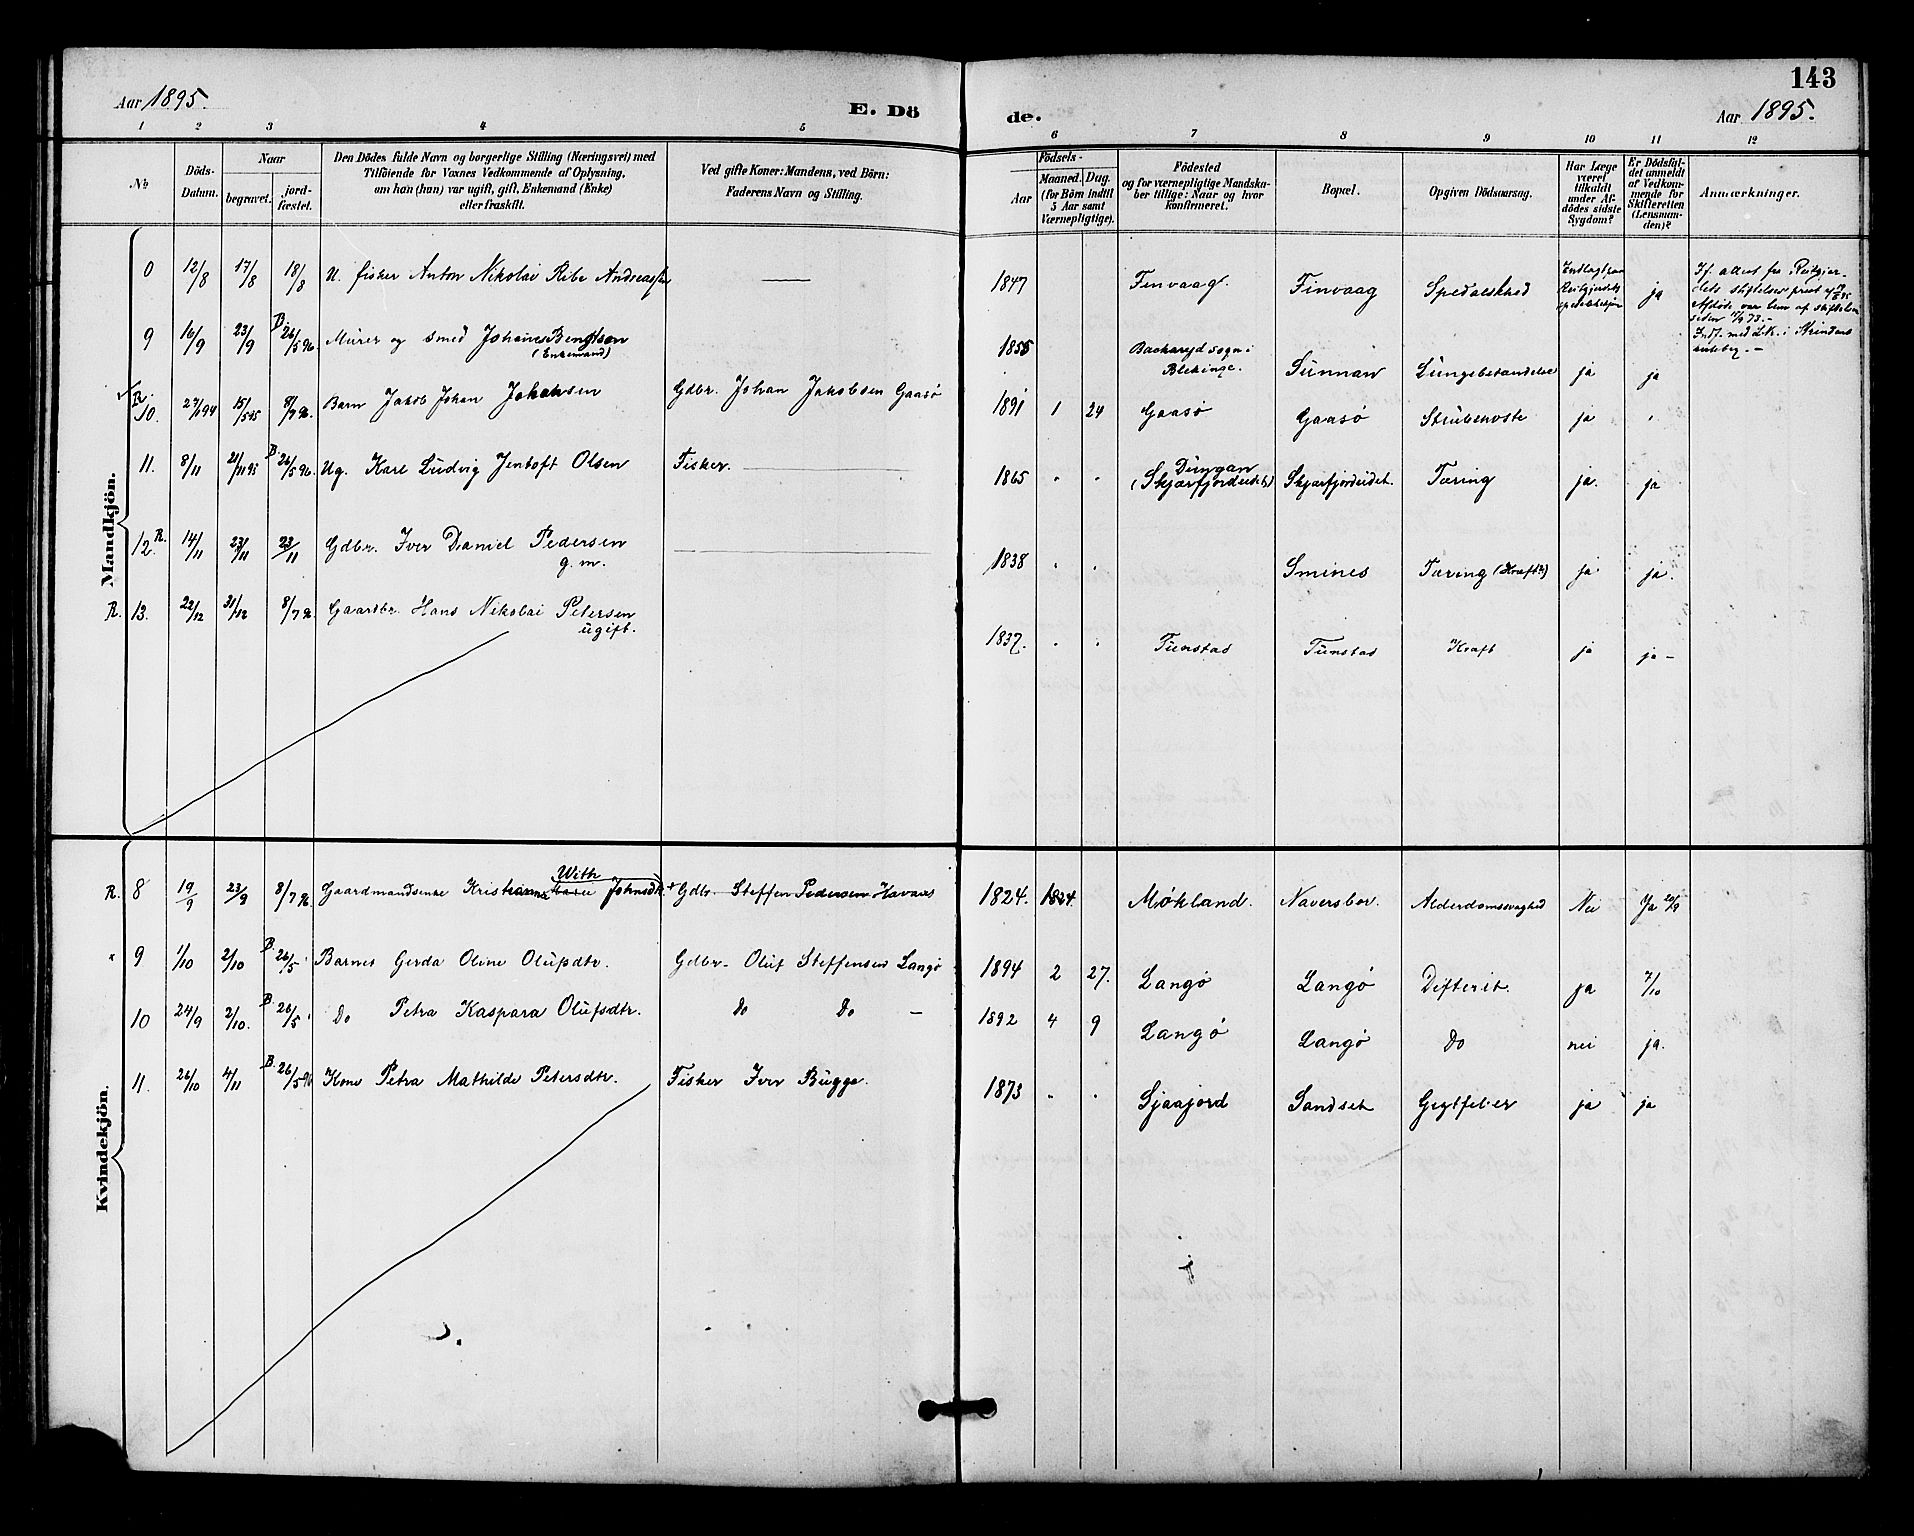 143
Aar 1895.
E. Dö
de.
Aar 1895.
1 2 3 4 5 6 7 8 9 10 11 12
No
Döds-
Datum.
Naar
begravet.
jord-
fæstet.
Den Dödes fulde Navn og borgerlige Stilling (Næringsvei) med
Tilföiende for Voxnes Vedkommende af Oplysning,
om han (hun) var ugift, gift, Enkemand (Enke)
eller fraskilt.
Ved gifte Koner: Mandens, ved Börn:
Faderens Navn og Stilling.
Födsels-
Aar
Maaned. Dag.
(for Börn indtil
5 Aar samt
Værnepligtige).
Födested
og for værnepligtige Mandska-
ber tillige: Naar og hvor
konfirmeret.
Bopæl.
Opgiven Dödsaarsag.
Har Læge
været
tilkaldt
under Af-
dödes sidste
Sygdom?
Er Dödsfal-
det anmeldt
af Vedkom-
mende for
Skifteretten
(Lensman-
den)?
Anmærkninger.
Mandkjön.
0 12/8 17/8 18/8 U. fisker Anton Nikolai Ribe Andreassen — 1847 Finvaag. Finvaag Spedalskhed Indlagt paa
ja
9 16/9 23/9 B. 26/5 96. Murer og smed Johanes Bengtson
(Enkemand)
1855 Backaryd sogn i
Blekinge. Sunnan Lungebetændelse ja ja
R. 10. 27/1 94 15/5 95 8/7 96. Barn Jakob Johan Johansen Gdbr. Johan Jakobsen Gaasø 1891 1 24 Gaasø Gaasø Strubehoste ja "
11. 8/11 21/11 95 B. 26/5 96. Ug. Karl Ludvig Jentoft Olsen Fisker. 1865 " " Dungan
(Skjærfjordeidet) Skjærfjordeidet. Tæring ja. ja
12. R. 14/11 23/11 23/11 Gdbr. Iver Daniel Pedersen
g. m.
1838 " " Smines Tæring (Kræft?) ja ja.
R. 13. 22/12 31/12 8/7 96. Gaardbr. Hans Nikolai Petersen
ugift.
1837. " " Tunstad Tunstad Kræft ja ja -
Kvindekjön.
With
R. 8 19/9 23/9 8/7 96. Gaardmandsenke Kristianna Marie Johnsdtr. Gdbr. Steffen Pedersen Havaas 1824. 1824. Møkland. Naversbor. Alderdomssvaghed Nei Ja 20/9
" 9 1/10 2/10 B. 26/5 Barnet Gerda Oline Olufsdtr. Gdbr. Oluf Steffensen Langø 1894 2 27. Langø Langø Difterit. ja 7/10
10 24/9 2/10. B. 26/5 Do Petra Kaspara Olufsdtr. Do Do — 1892 4 9 Langø Langø Do nei ja.
11. 26/10 4/11 B. 26/5 96 Kone Petra Mathilde Petersdtr. Fisker Iver Bugge. 1873 " " Sjaajord Sandset Gigtfeber ja ja